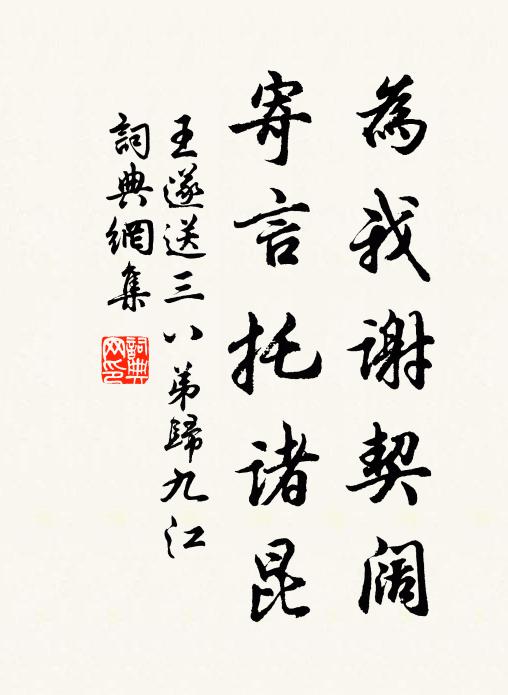 為我谢契阔
寄言托诸昆
王遂送三八弟歸九江
詞典網集
詞典网印